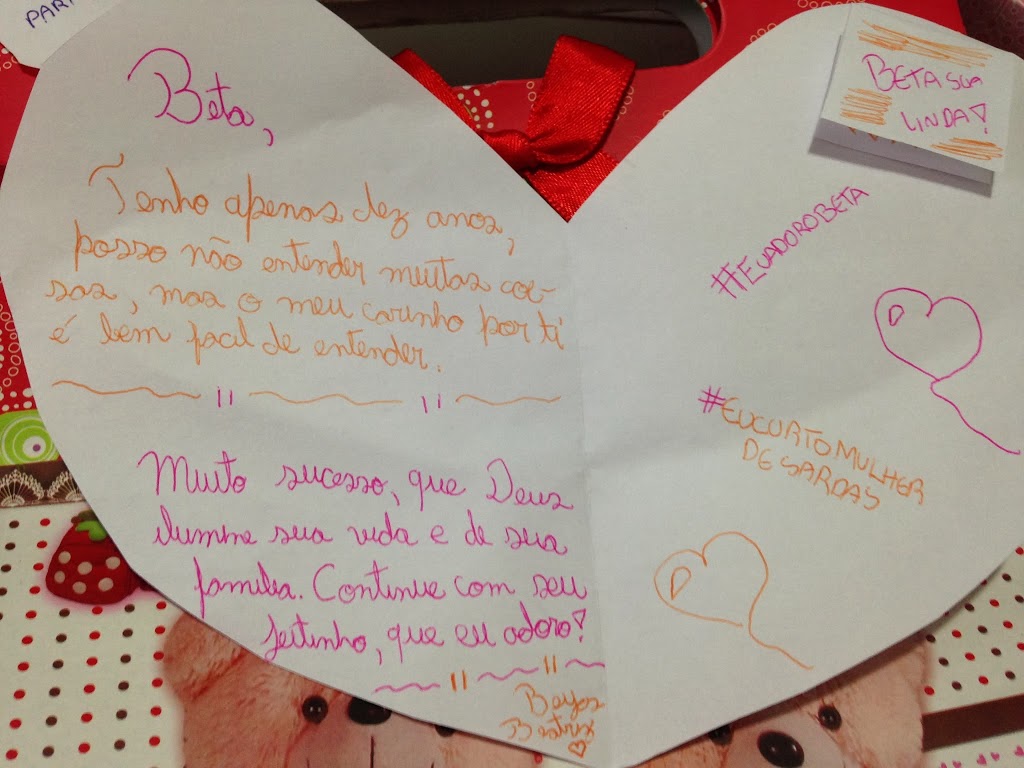 PAR
Beta,
Tenho apenas dez anos,
posso não entender muitas coi-
sas, mas o meu carinho por ti
é bem facil de entender.
Muito sucesso, que Deus
ilumine sua vida e de sua
familia. Continue com seu
jeitinho, que eu adoro!
Beijos
Beatriz
BETA SUA
LINDA!
#EUADOROBETA
#EUCURTOMULHER
DE SARDAS